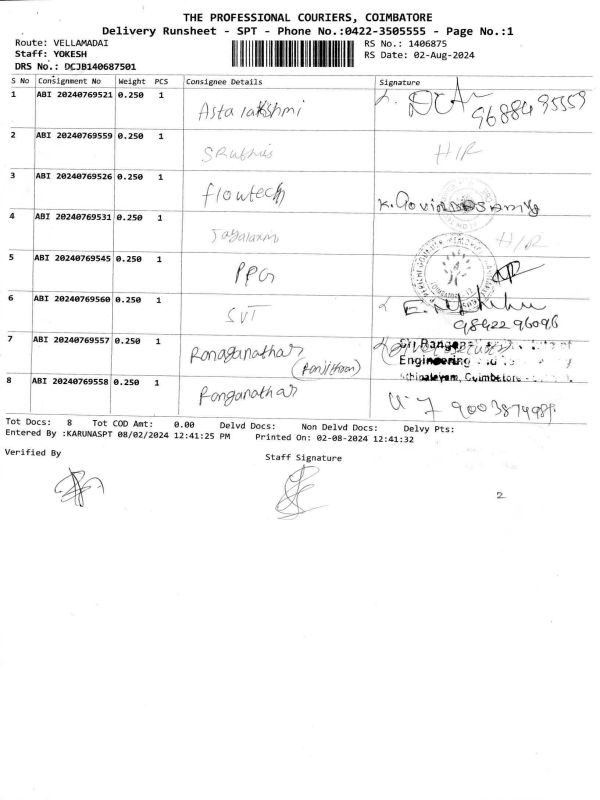 THE PROFESSIONAL COURIERS, COIMBATORE
Delivery Runsheet - SPT - Phone No.:0422-3505555 - Page No.:1
Route: VELLAMADAI RS No.: 1406875
Staff: YOKESH RS Date: 02-Aug-2024
DRS No.: DCJB140687501
S No Consignment No Weight PCS Consignee Details Signature
1 ABI 20240769521 0.250 1 Asta lakshmi 9688495559
2 ABI 20240769559 0.250 1 H/R
3 ABI 20240769526 0.250 1 flowtech K. Govindasamy
4 ABI 20240769531 0.250 1 H/R
5 ABI 20240769545 0.250 1 PPG
6 ABI 20240769560 0.250 1 SVT
9842296096
7 ABI 20240769557 0.250 1 Ranaganathar Sri Ranga
(Ranjitham) Engineering
8 ABI 20240769558 0.250 1 Ranganathar Coimbatore
Tot Docs: 8 Tot COD Amt: 0.00 Delvd Docs: Non Delvd Docs: Delvy Pts:
Entered By :KARUNASPT 08/02/2024 12:41:25 PM Printed On: 02-08-2024 12:41:32
Verified By Staff Signature
2